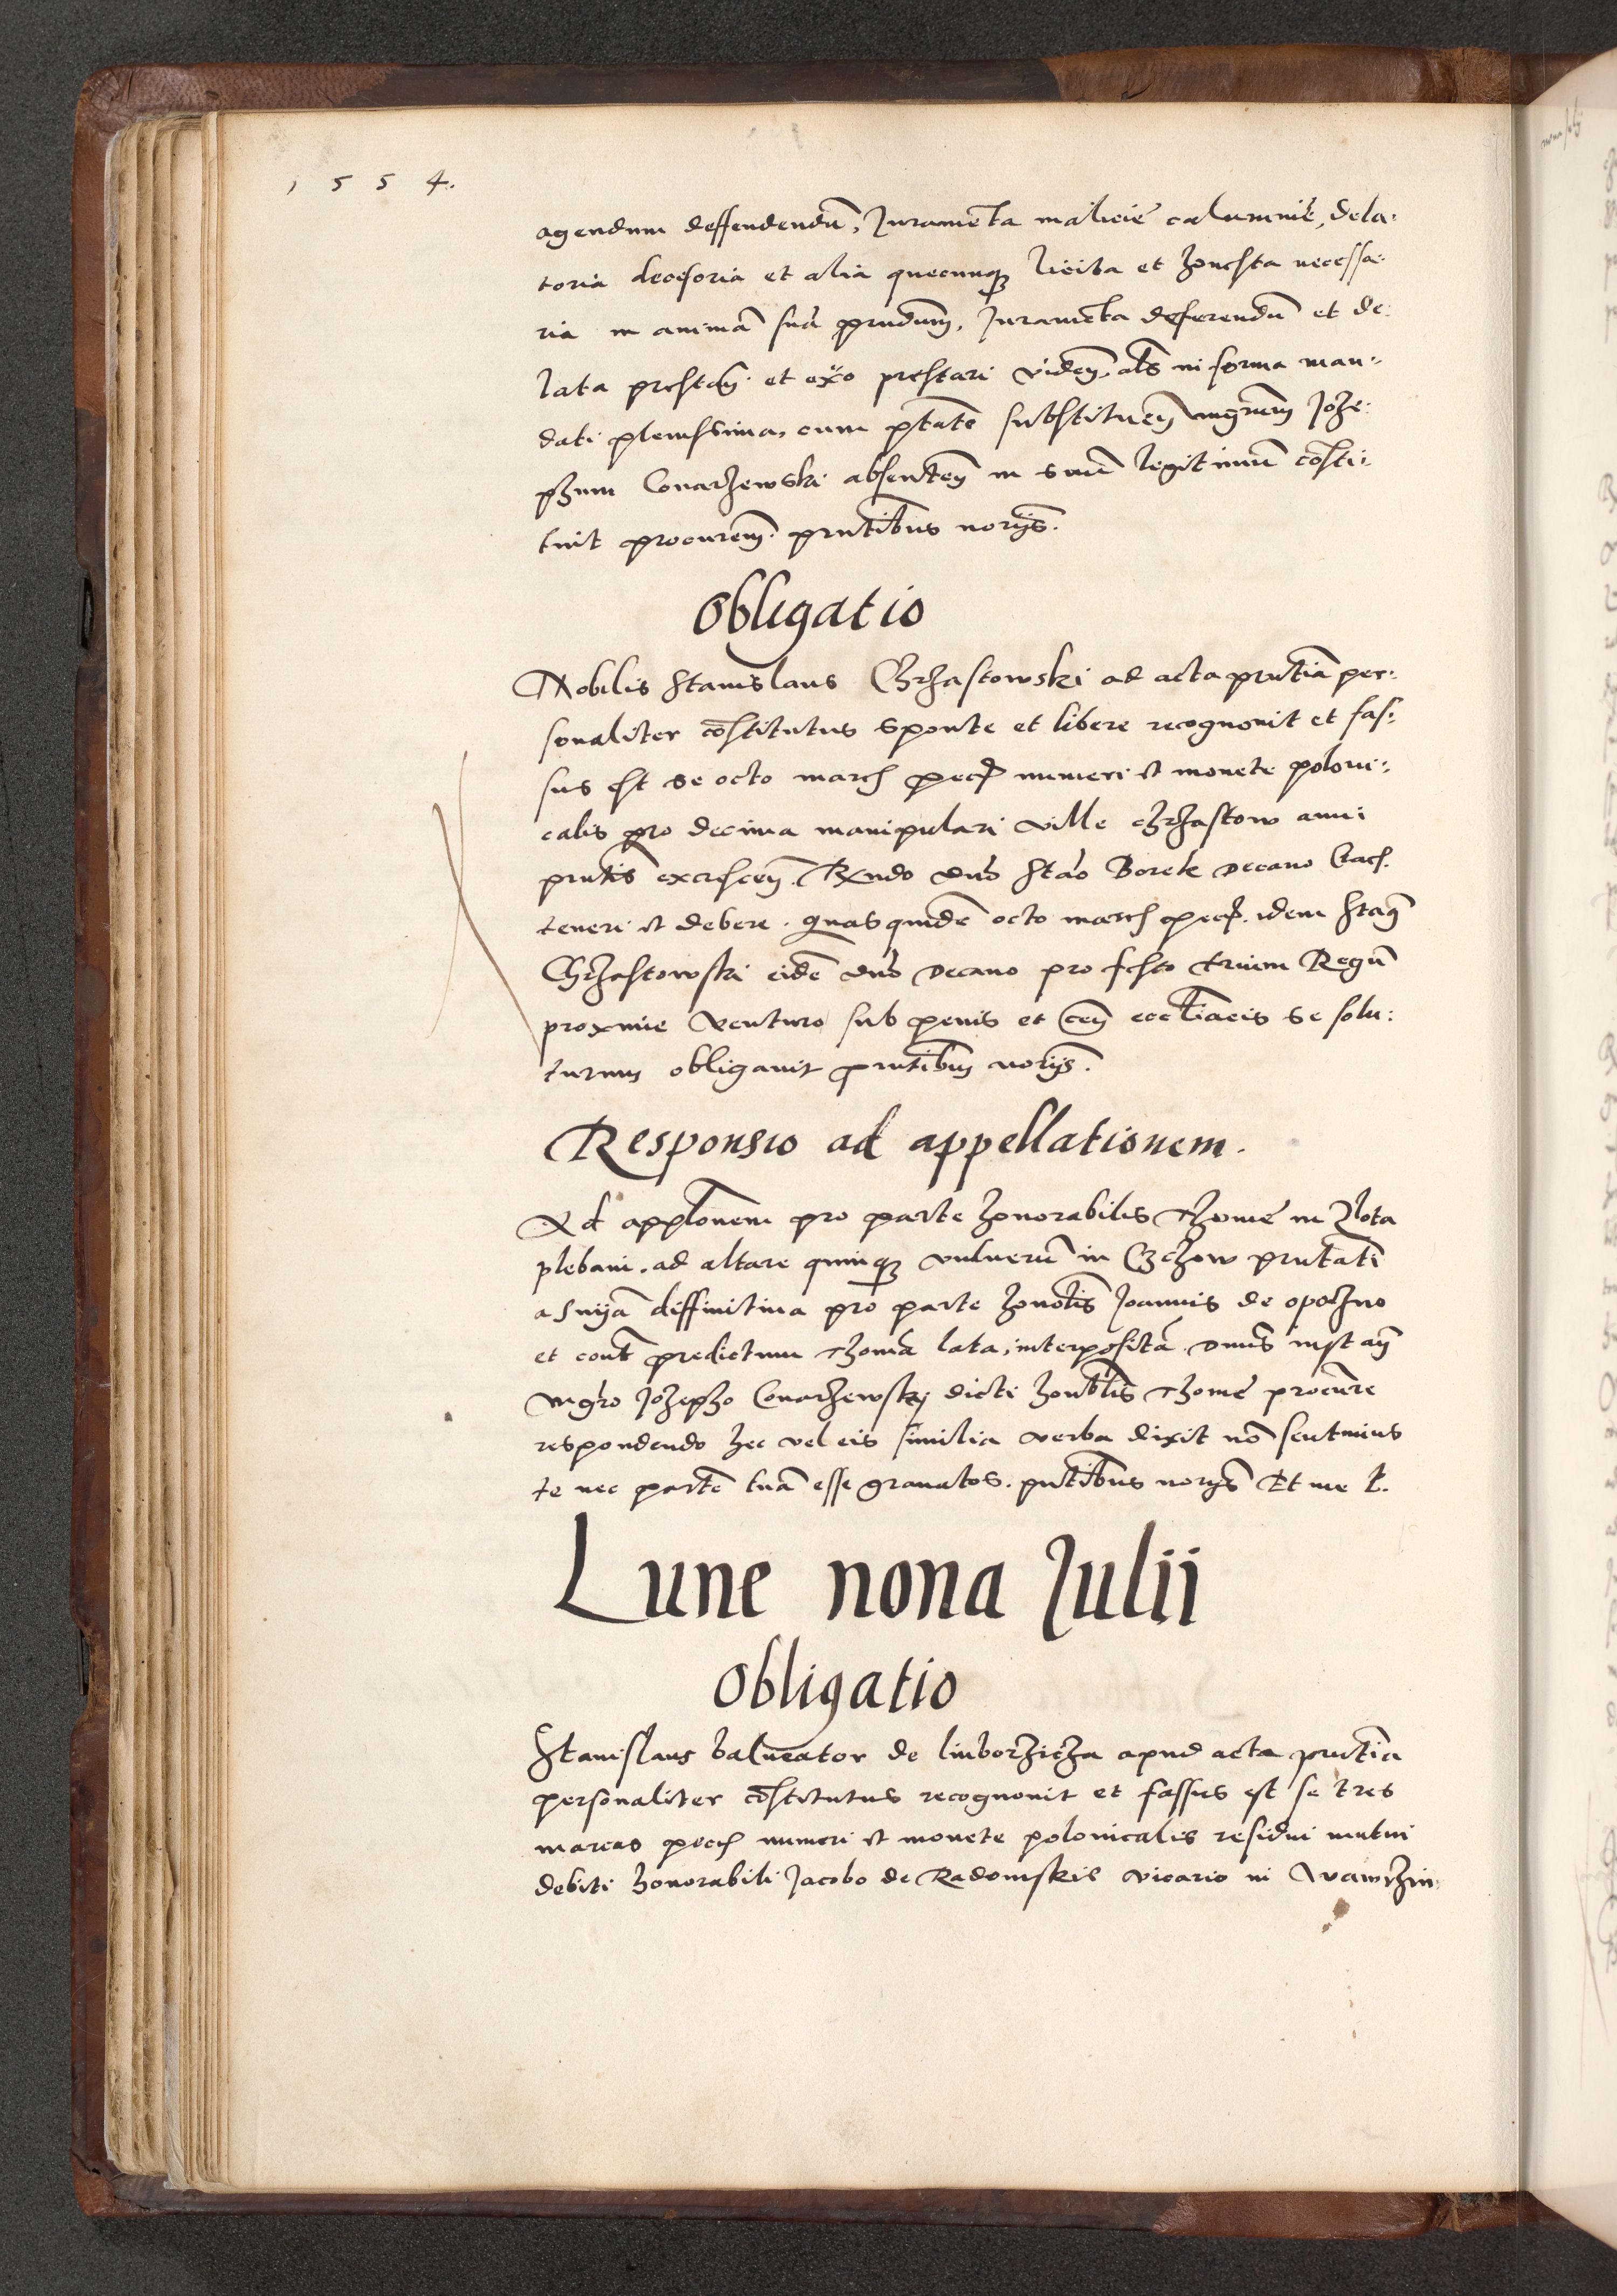 1554.
agendum deffendendũ, Juramẽta malicie calumnie, dela:
toria decisoria et alia quecunqꝫ licita et honesta necessa:
ria in animã suã prndum, Juramẽta deferendũ et de:
lata prestaň et exo prestari videň, als in forma man:
dati plenissima, cum ptate substitueň mgrum Joze:
phum Conarzewski absenteň in suũ legitimũ cõsti:
tuit procurem. prntibus norijs.
Obligatio
Nobilis Stanislaus Chrzastowski ad acta prntia per:
sonaliter cõstitutus sponte et libere recognouit et fas:
sus est se octo march pecũ numeri et monete poloni:
calis pro decima manipulari ville Chrzastow anni
prntis excresceň. Rndo dno Stao Borek decano Crac.
teneri et debere. quas quidẽ octo march pecũ. idem Staň
Chrzastowski eidẽ dno decano pro festo trium Regũ
proxime venturo sub penis et ceň eccliacis se solu:
turum obligauit prntibus norijs.
Responsio ad appellationem.
Ad applonem pro parte honorabilis Thome in Zlota
plebani. ad altare quinqꝫ vulnerũ in Czchow prntati
a snija diffinitiua pro parte honolis Joannis de opoczno
et cont predictum Thomã lata, interpositã. dnus instaň
mgro Jozepho Conarzewskj dicti honblis Thome procure
respondendo hec vel eis similia verba dixit nõ sentimus
te nec partẽ tuã esse grauatos. pntibus norijs Et me t.
Lune nona Julii
Obligatio
Stanislaus balneator de liuborzicza apud acta prntia
personaliter cõstitutus recognouit et fassus est se tres
marcas pecũ numeri et monete polonicalis residui mutui
debiti honorabili Jacobo de Radomskie vicario in Wawrzin: